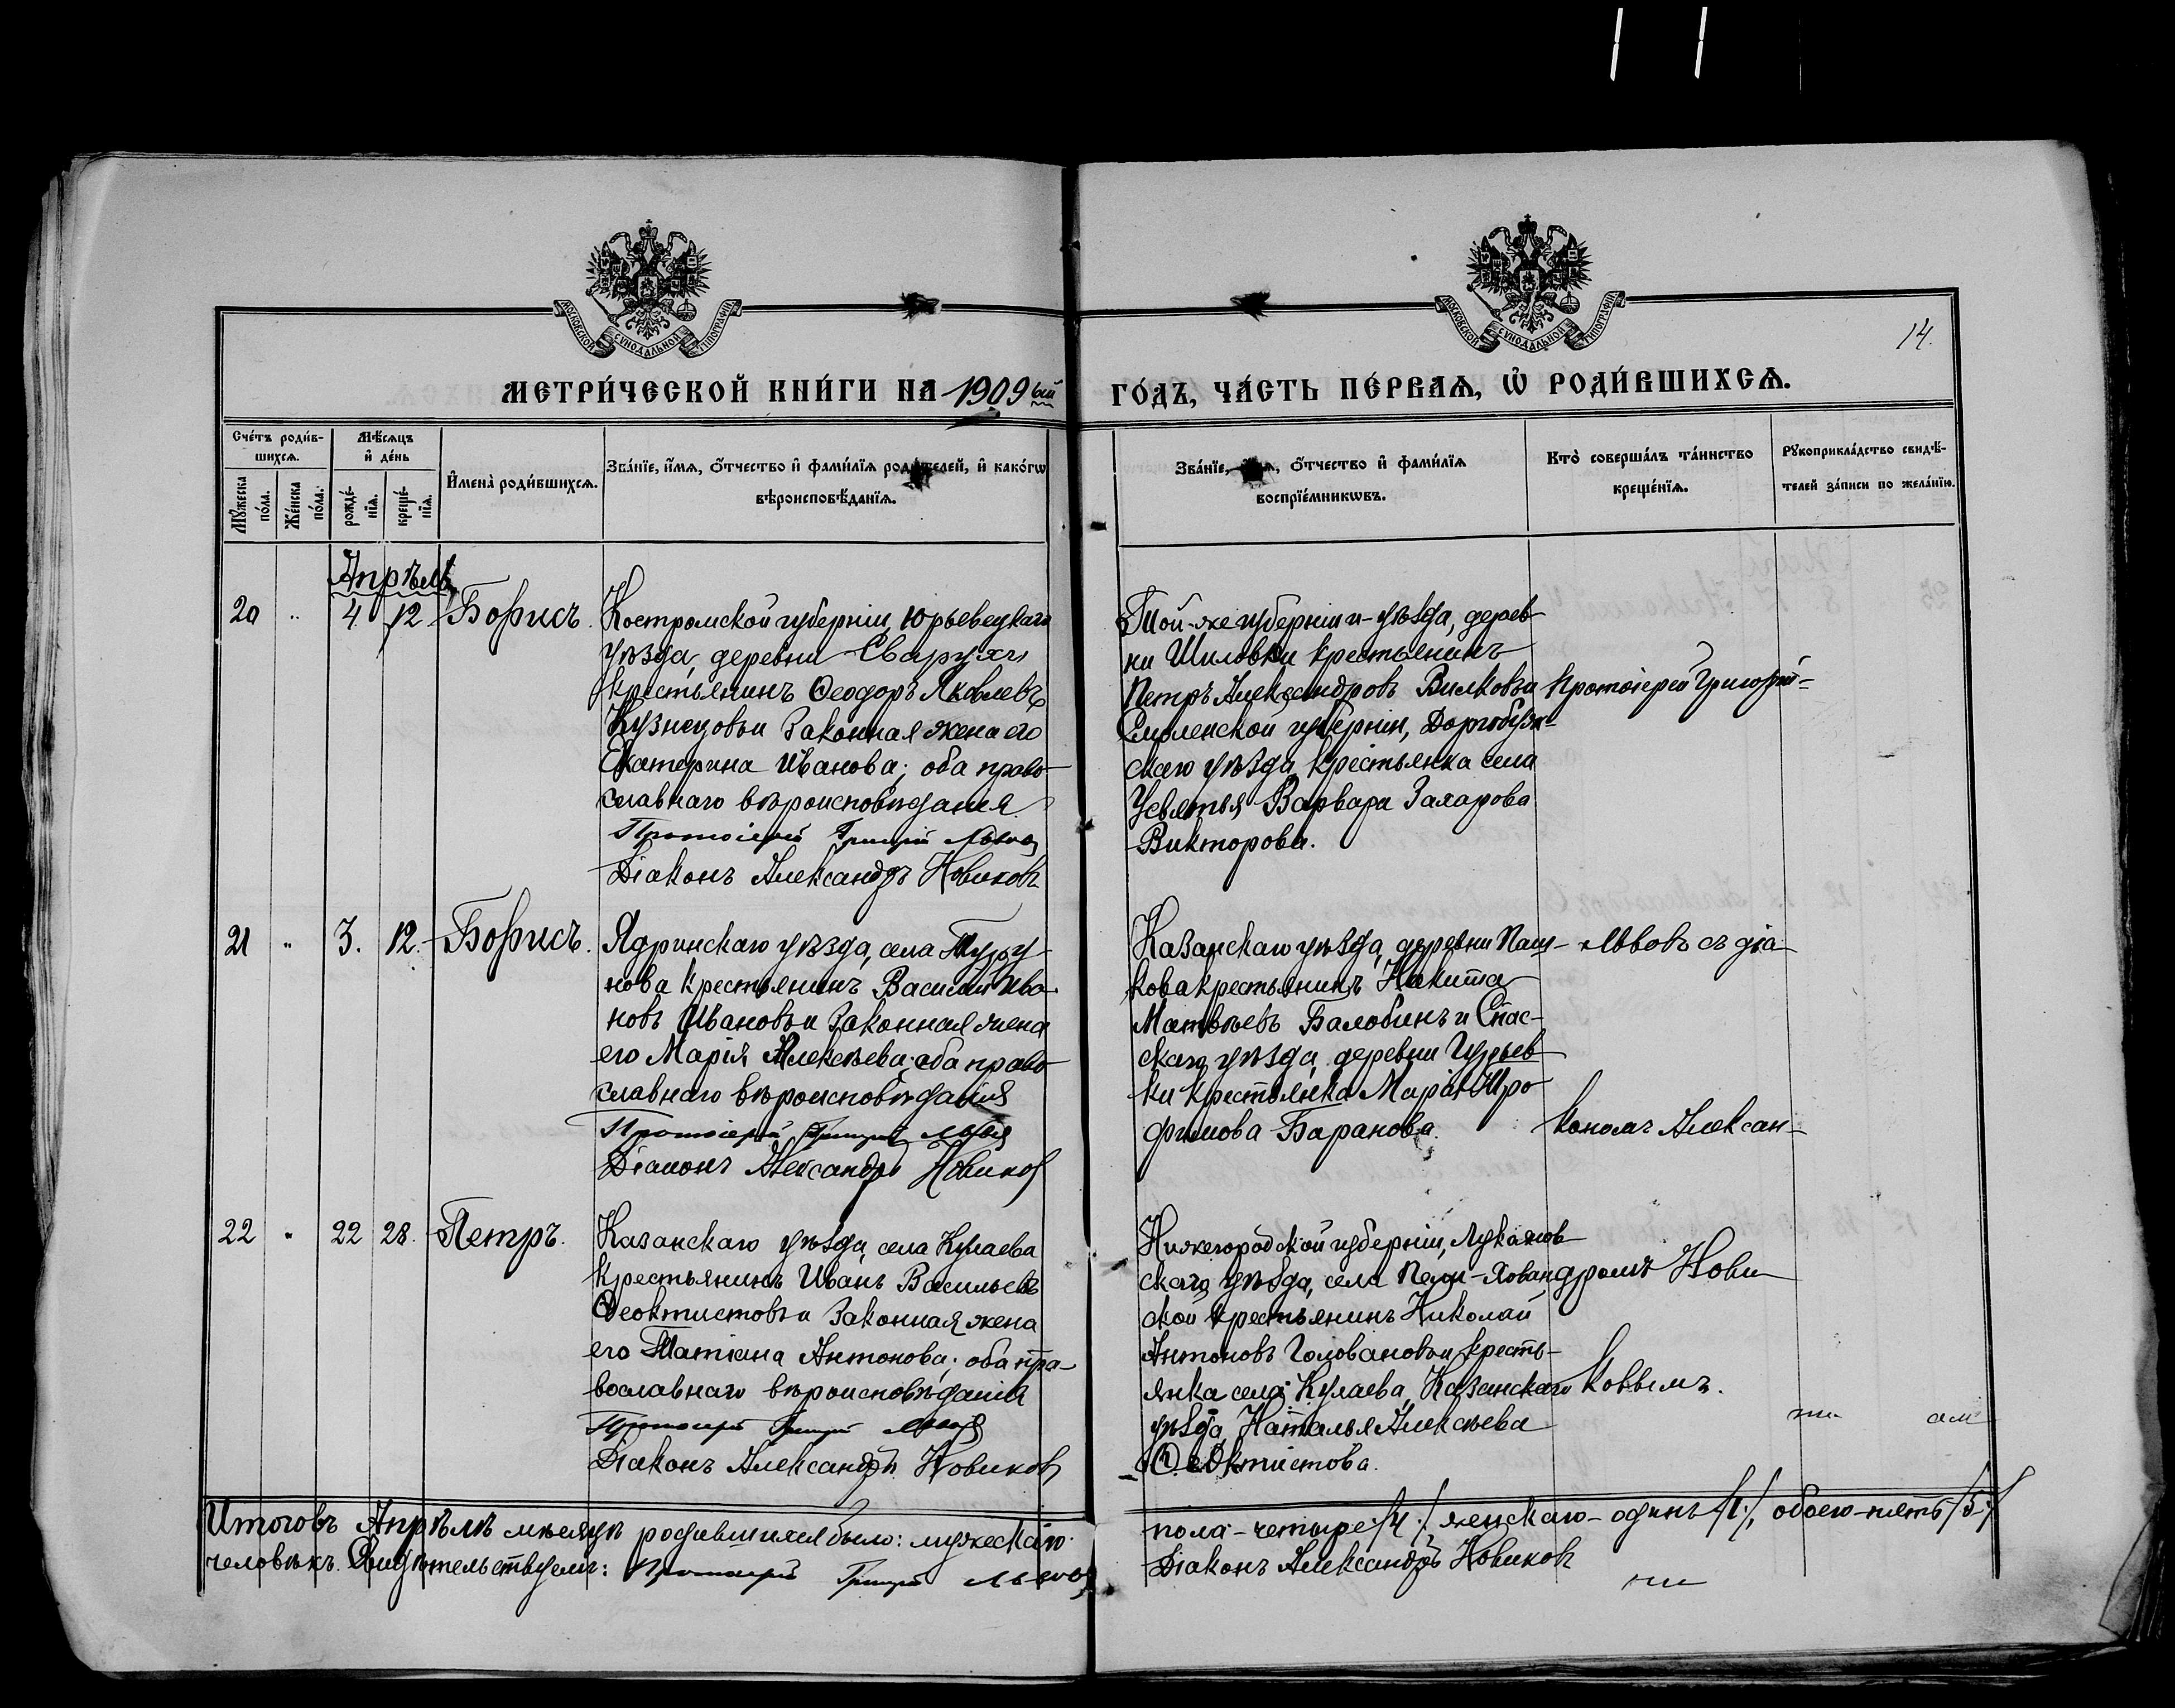 МОСКОВСКОЙ СѴНОДАЛЬНОЙ ТИПОГРАФІИ
МОСКОВСКОЙ СѴНОДАЛЬНОЙ ТИПОГРАФІИ
14.
МЕТРИ́ЧЕСКОЙ КНИ́ГИ НА 1909ый ГО́ДЪ, ЧА́СТЬ ПЕ́РВАѦ, Ѽ РОДИ́ВШИХСѦ.
Сче́тъ роди́в-
шихсѧ.
Мѣ́сѧцъ
и҆ де́нь
Мꙋ́жеска
по́ла.
Же́нска
по́ла.
рожде́-
нїѧ.
креще́-
нїѧ.
И҆мена̀ роди́вшихсѧ.
Зва́нїе, и҆́мѧ, ѻ҆́тчество и҆ фами́лїѧ роди́телей, и҆ како́гѡ
вѣроисповѣ́данїѧ.
Зва́нїе, и҆́мѧ, ѻ҆́тчество и҆ фами́лїѧ
воспрїе́мникѡвъ.
Кто̀ соверша́лъ та́инство
креще́нїѧ.
Рꙋкоприкла́дство свидѣ́-
телей за́писи по жела́нїю.
Апрѣль
20 " 4 12 Борисъ.
Костромской губерніи, Юрьевецкаго
уѣзда, деревни Сварухи
крестьянинъ Ѳеодоръ Яковлевъ
Кузнецовъ и законная жена его
Екатерина Иванова; оба право-
славнаго вѣроисповѣданія
Протоіерей Григорій Львовъ
Діаконъ Александръ Новиковъ
Той-же губерніи и уѣзда, дерев-
ни Шиловки крестьянинъ
Петръ Александровъ Вилковъ и
Смоленской губерніи, Дорогобуж-
скаго уѣзда, крестьянка села
Усвятья Варвара Захарова
Викторова.
Протоіерей Григорій
21 " 3. 12. Борисъ.
Ядринскаго уѣзда, села Туру-
нова крестьянинъ Василій Ива-
новъ Ивановъ и законная жена
его Марія Алексѣева; оба право-
славнаго вѣроисповѣданія
Протоіерей Григорій Львовъ
Діаконъ Александръ Новиковъ
Казанскаго уѣзда, деревни Паш-
кова крестьянинъ Никита
Матвѣевъ Балобинъ и Спас-
скаго уѣзда, деревни Гурьев-
ки крестьянка Марія Тро-
фимова Баранова.
Львовъ съ діа-
кономъ Алексан-
22 " 22 28. Петръ.
Казанскаго уѣзда, села Кулаева
крестьянинъ Иванъ Васильевъ
Ѳеоктистовъ и законная жена
его Татіана Антонова; оба пра-
вославнаго вѣроисповѣданія
Протоіерей Григорій Львовъ
Діаконъ Александръ Новиковъ
Нижегородской губерніи, Лукоянов-
скаго уѣзда, села Пели-Хован-
ской крестьянинъ Николай
Антоновъ Головановъ и кресть-
янка села Кулаева, Казанскаго
уѣзда, Наталья Алексѣева
Ѳеоктистова.
дромъ Нови-
ковымъ.
Итого въ Апрѣлѣ мѣсяцѣ родившихся было: мужескаго пола - четыре /4./ женскаго - одинъ /1./, обоего - пять /5./
человѣкъ. Свидѣтельствуемъ: Протоіерей Григорій Львовъ Діаконъ Александръ Новиковъ